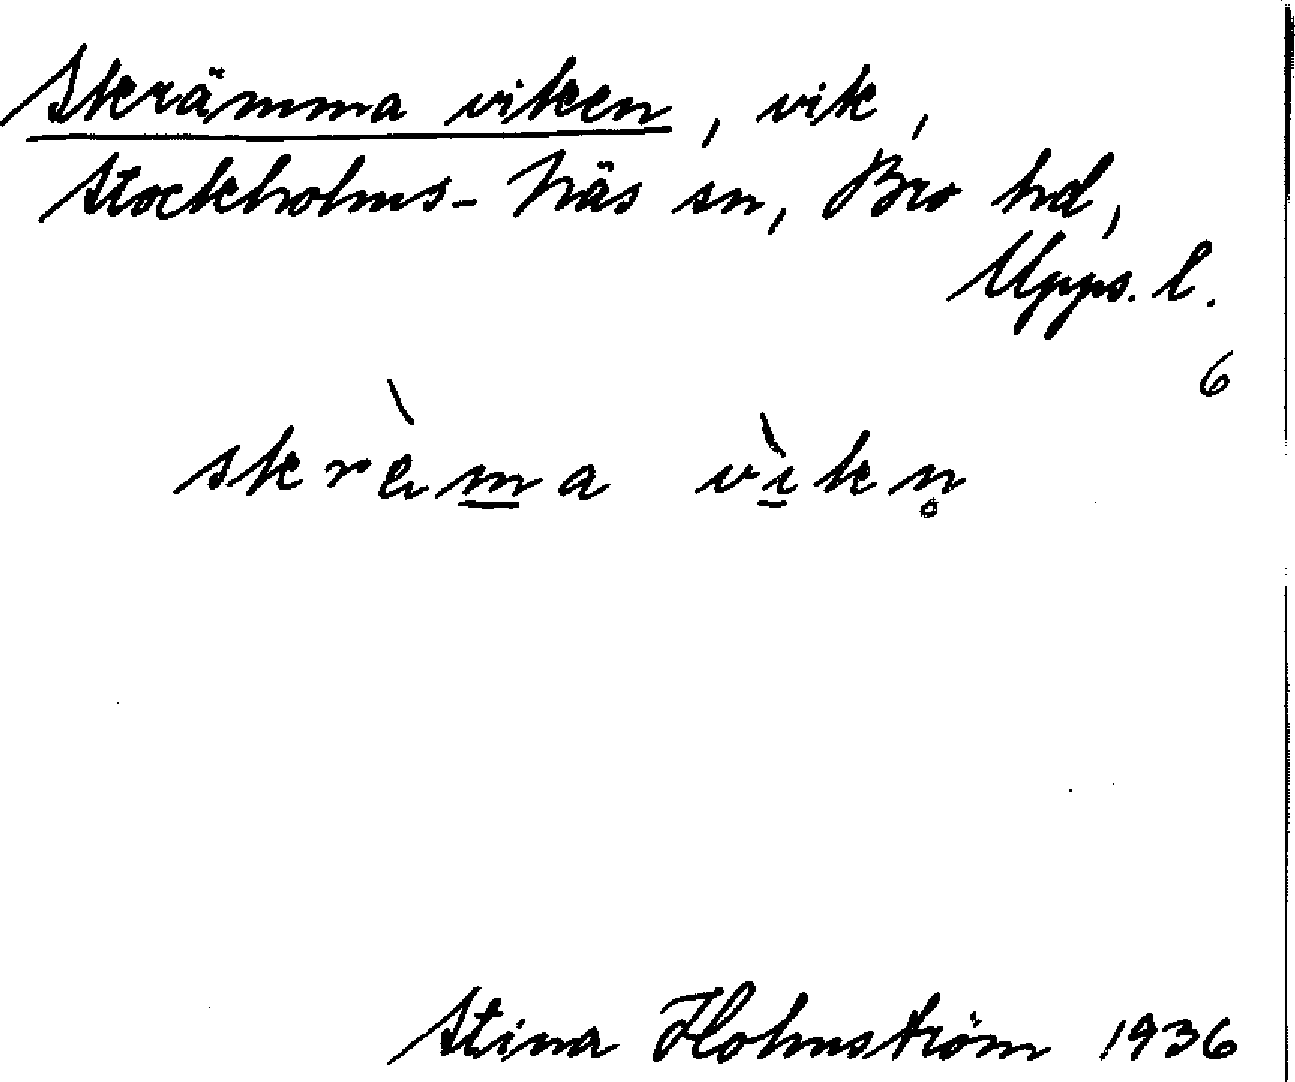 Skrämma viken, vik,
Stockholms-Näs sn, Bro hd,
Upps. l.
6
skrä̀m̲a vì̲kn̥
Stina Holmström 1936